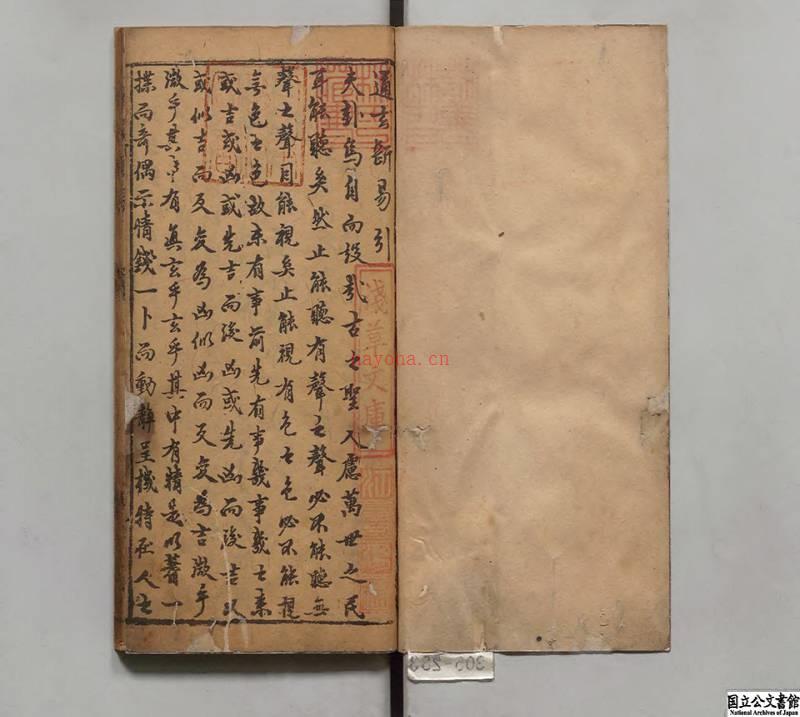 通玄斷易引
夫卦烏自而設哉古之聖人慮萬世之民
耳能聽矣然止能聽有聲之聲必不能聽無
聲之聲目能視矣止能視有色之色必不能視
無色之色故未有事前先有事幾事幾之來
或吉或凶或先吉而後凶或先凶而後吉又
或似吉而反變為凶似凶而反變為吉微乎
微乎其中有真玄乎玄乎其中有精是以蓍一
揲而奇偶示情錢一卜而動靜呈機特在人之
淺草文庫
hayona.cn
305-253
国立公文書館
National Archives of Japan